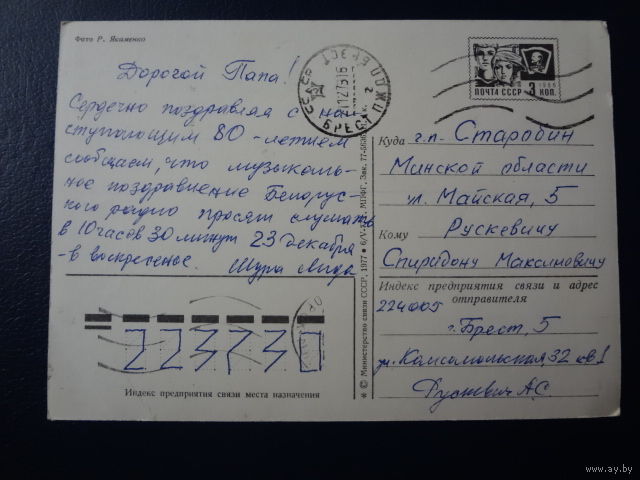 Фото Р. Якименко
Дорогой Папа!
Сердечно поздравляя с на-
ступающим 80-летием
сообщаем, что музыкаль-
ное поздравление Белорус-
кого радио просят слушать
в 10 часов 30 минут 23 декабря
-в воскресенье. Шура Лида
223730
Индекс предприятия связи места назначения
© Министерство связи СССР, 1977
СССР
БРЕСТ
ПОЧТА СССР
3 КОП.
1966
Куда г.п. Старобин
Минской области
ул. Майская, 5
Кому Рускевичу
Спиридону Максимовичу
Индекс предприятия связи и адрес
отправителя
224005
г. Брест, 5
ул. Комсомольская, 32 кв 1
Рускевич А.С.
www.ay.by